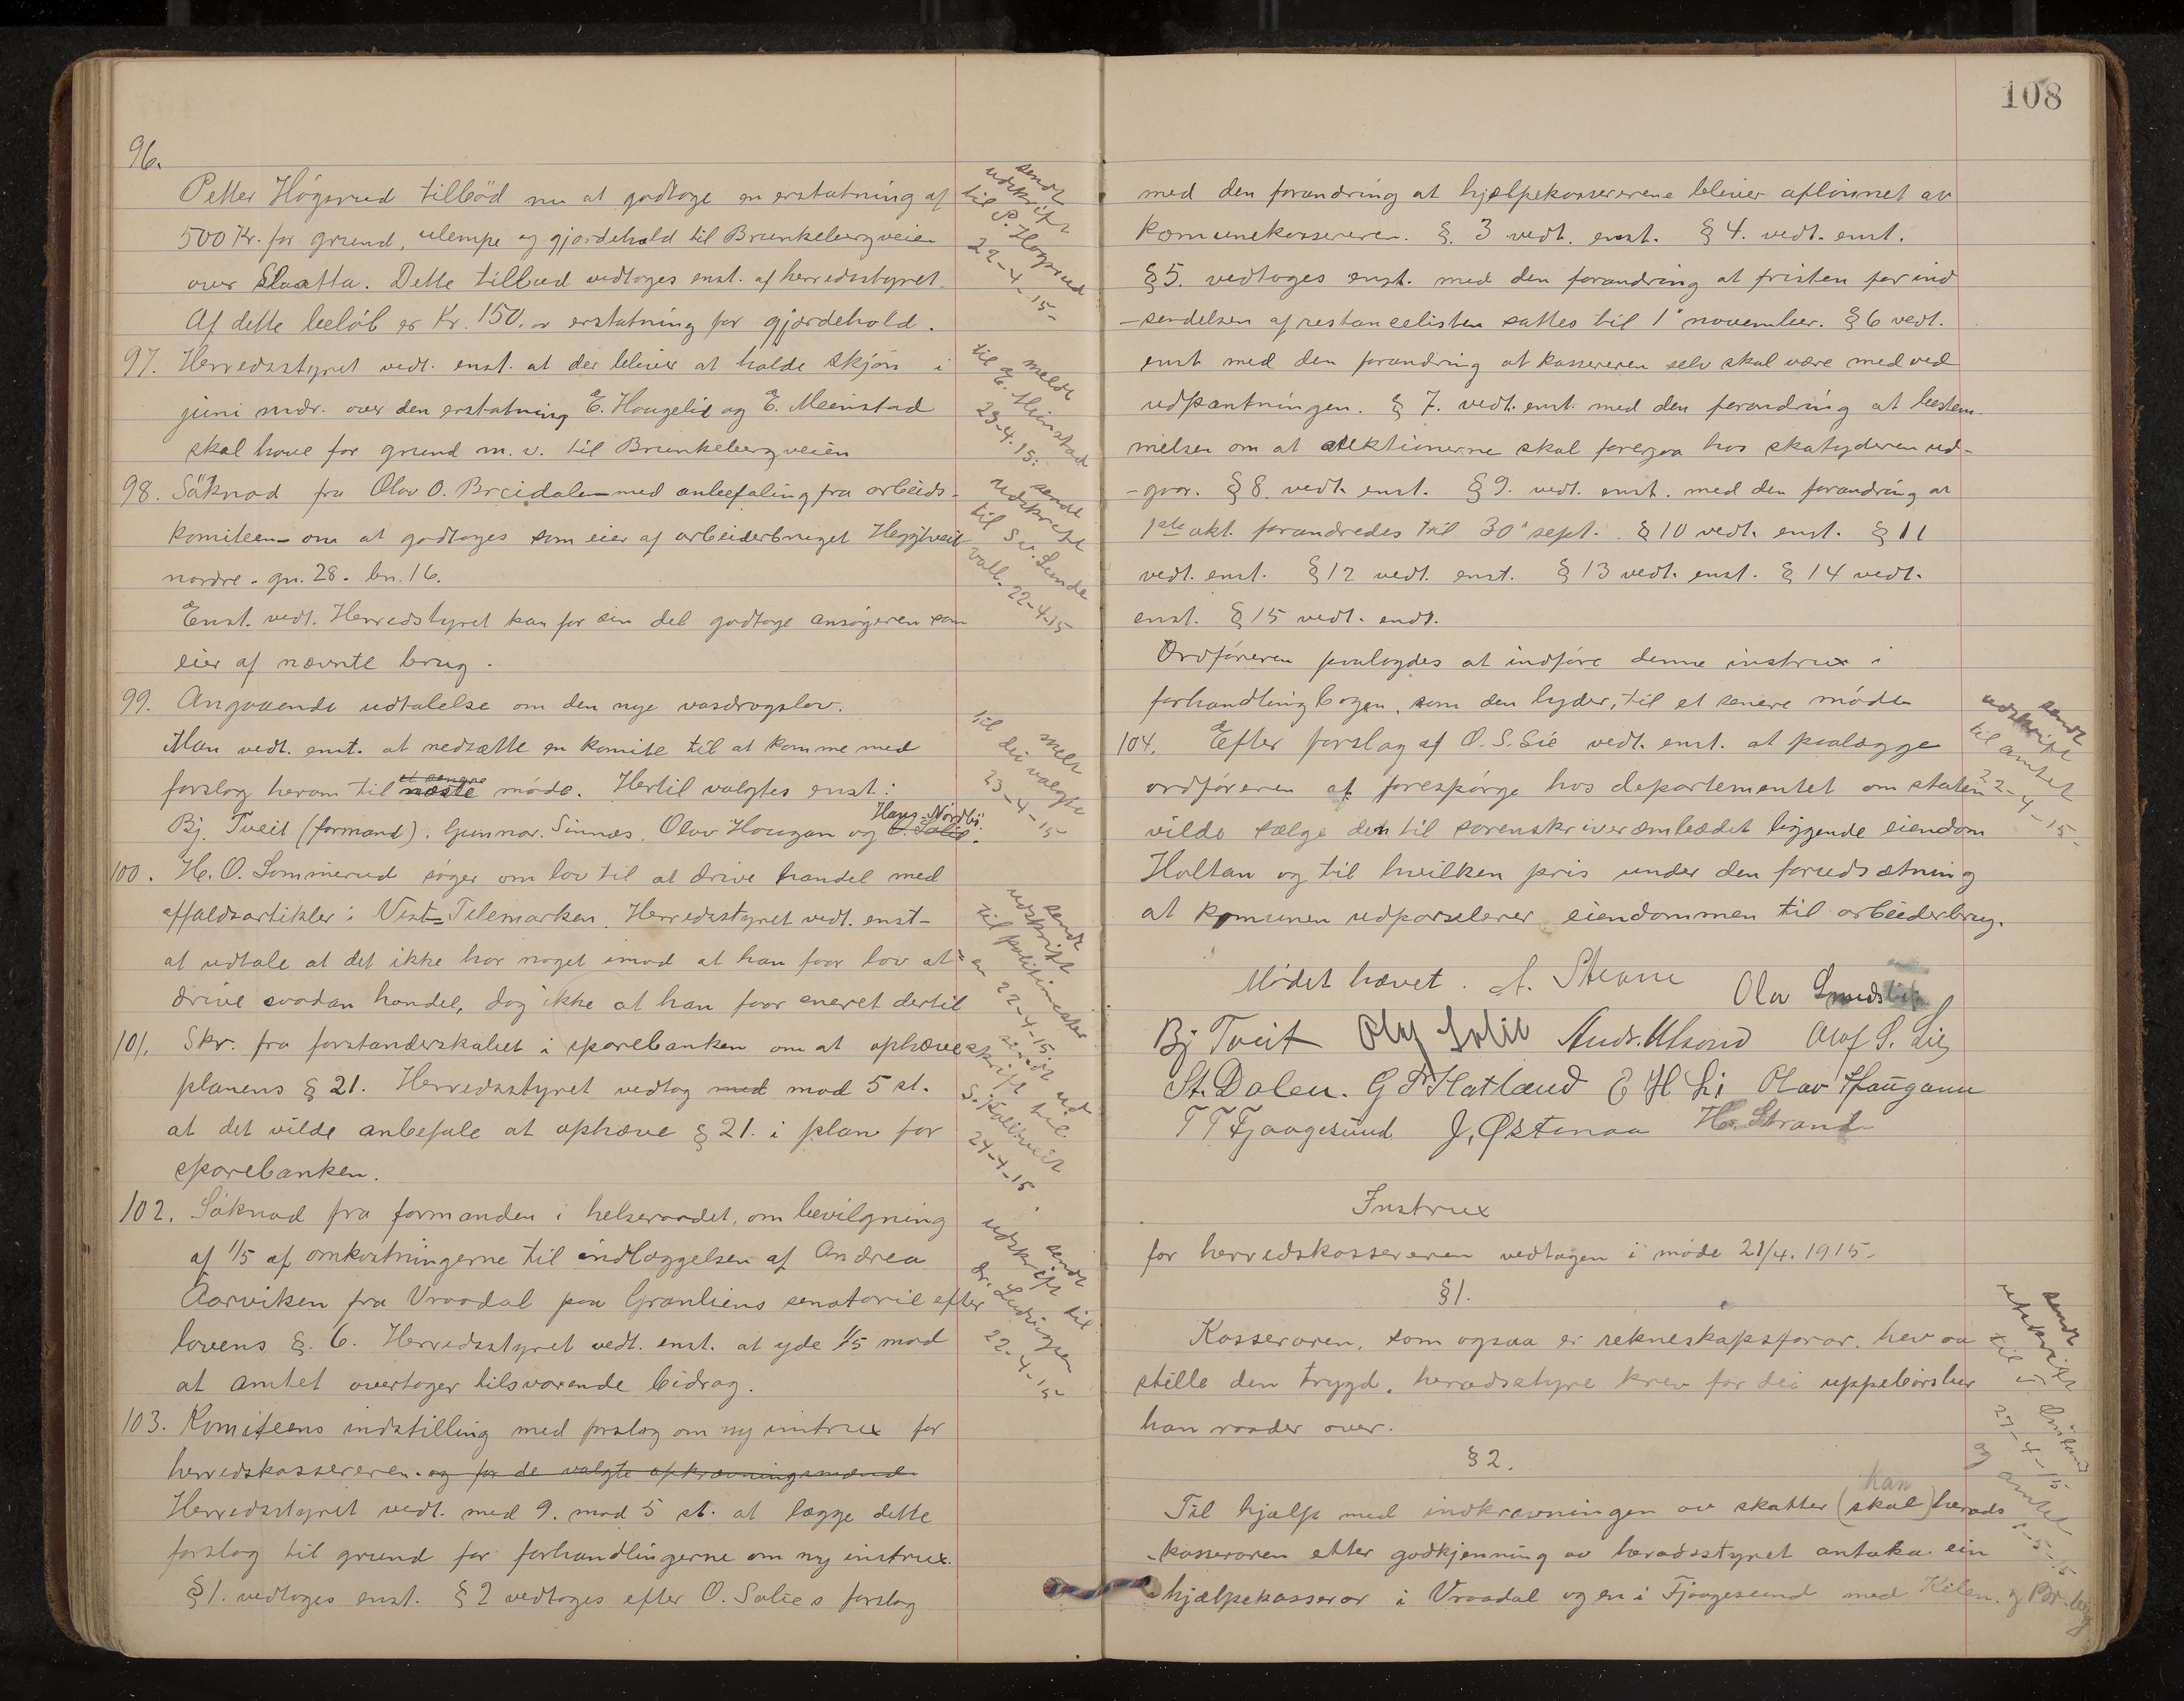 96.
Petter Högsrud tilböd nu at godtage en erstatning af
500 Kr. for grund, ulempe og gjærdehold til Brunkebergveien
over Slaatta. Dette tilbud vedtoges enst. af herredsstyret.
Af dette belöb er Kr. 150, erstatning for gjærdehold.
97. Herredsstyret vedt. enst. at der bliver at holde skjøn i
juni mdr. over den erstatning E. Haugelid og E. Meinstad
skal have for grund m. v. til Brunkebergveien
98. Söknad fra Olav O. Breidalen med anbefaling fra arbeids-
komiteen om at godtages som eier af arbeiderbruget Heggtveit
nordre. gn. 28. bn. 16.
Enst. vedt. Herredstyret kan for sin del godtage ansøgeren som
eier af nævnte brug.
99. Angaaende udtalelse om den nye vasdragslov.
Man vedt. enst. at nedsætte en komite til at komme med
et senere
forslag herom til næste møde. Hertil valgtes enst:
Hans Nordbö.
Bj. Tveit (formand). Gunnar Sinnes. Olav Haugan og O. Solie.
100. H. O. Sommerud søger om lov til at drive handel med
affaldsartikler i Vest-Telemarken. Herredsstyret vedt. enst-
at udtale at det ikke har noget imod at han faar lov at
drive saadan handel, dog ikke at han faar eneret dertil
101. Skr. fra forstanderskabet i sparebanken om at ophæve
planens § 21. Herredsstyret vedtog med mod 5 st.
at det vilde anbefale at ophæve § 21. i plan for
sparebanken.
102. Söknad fra formanden i helseraadet, om bevilgning
af 1/5 af omkostningerne til indlæggelsen af Andrea
Aarviken fra Vraadal paa Granliens senatorie efter
lovens §. 6. Herredsstyret vedt. enst. at yde 1/5 mod
at amtet overtager tilsvarende bidrag.
103. Komiteens indstilling med forslag om ny instrux for
herredskassereren. og for de valgte opkrævningsmænd.
Herredsstyret vedt. med 9. mod 5 st. at lægge dette
forslag til grund for forhandlingerne om ny instrux.
§ 1. vedtoges enst. § 2 vedtoges efter O. Solies forslag
sendt
udskrift
til P. Högsrud
22-4-15-
meldt
til E. Meinstad
23-4.15.
sendt
udskrift
til S. v. Lunde
vall. 22-4-15
melt
til dei valgte
23-4-15
sendt
udskrift
til politimester
en 22-4-15.
sendt ud
skrift til
S. Kalltveit
24-4-15.
sendt
udskrift til
dr. Ludvigsen
22-4-15
108
med den forandring at hjælpekassererene bliver aflønnet av
komunekassereren. §. 3 vedt. enst. § 4. vedt. enst.
§ 5. vedtoges enst. med den forandring at fristen for ind
-sendelsen af restancelisten sattes til 1' november. § 6 vedt.
enst med den forandring at kassereren selv skal være med ved
udpantningen. § 7. vedt. enst. med den forandring at bestem-
melsen om at auktionerne skal foregaa hos skatyderen ud-
-gaar. § 8. vedt. enst. § 9. vedt. enst. med den forandring at
1ste okt. forandredes til 30' sept. § 10 vedt. enst. § 11
vedt. enst. § 12 vedt. enst. § 13 vedt. enst. § 14 vedt.
enst. § 15 vedt. endt.
Ordføreren paalagdes at indføre denne instrux i
forhandlingbogen, som den lyder, til et senere møde
104. Efter forslag af O. S. Lie vedt. enst. at paalægge
ordføreren at forespørge hos departementet om staten
vilde sælge den til sorenskriverembædet liggende eiendom
Holtan og til hvilken pris under den forudsætning
at komunen udparselerer eiendommen til arbeiderbrug.
Mødet hævet. A. Steane Olav Smedsli
Bj Tveit Olaf Solie Ands. Ulsand Olaf S. Lie
St. Dalen. G T Hatland E H Li Olav Haugann
T T Fjaagesund J. Østenaa H. Strand
sendt
udskrift
til amtet
22-4-15-
Instrux
for herredskassereren vedtagen i møde 21/4. 1915.
§ 1.
Kasseraren, som ogsaa er rekneskapsførar, hev aa
stille den trygd, heradsstyre krev for dei uppebörslur
han raader over.
§ 2.
han
Til hjælp med indkrævningen av skatter (skal) herads
-kasseraren etter godkjenning av heradsstyret antaka ein
hjælpekasserar i Vraadal og en i Fjaagesund med Kilen. og Br.berg
sendt
utskrift
27-4-15
og amtet